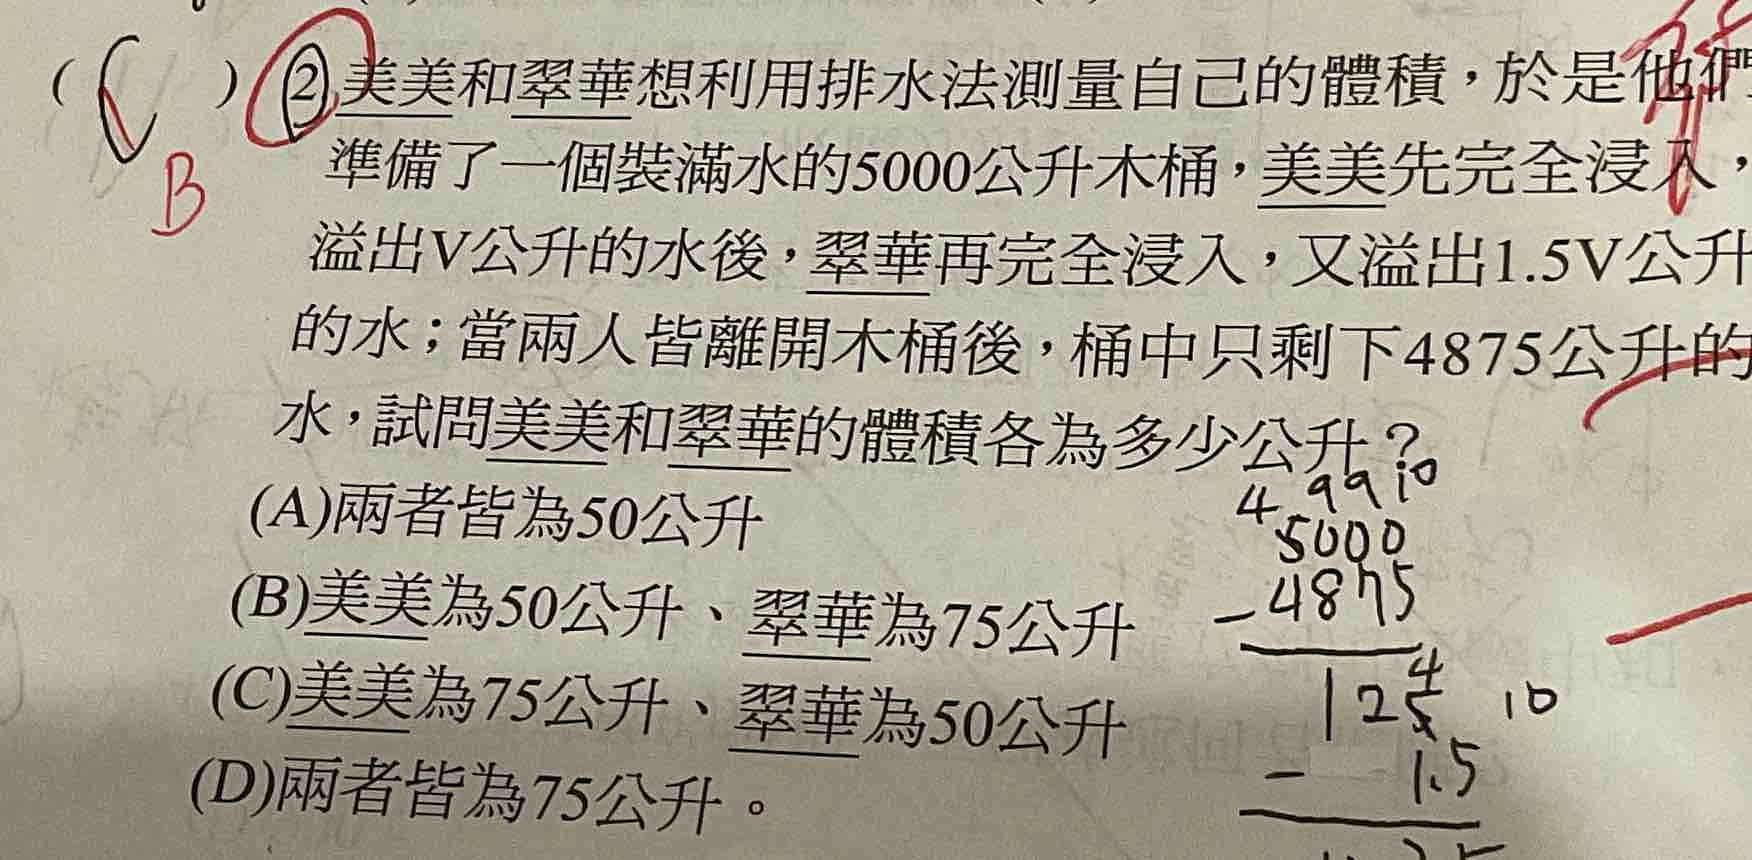 ( C ) ②美美和翠華想利用排水法測量自己的體積，於是他們
B
準備了一個裝滿水的5000公升木桶，美美先完全浸入，
溢出V公升的水後，翠華再完全浸入，又溢出1.5V公升
的水；當兩人皆離開木桶後，桶中只剩下4875公升的
水，試問美美和翠華的體積各為多少公升？
(A)兩者皆為50公升
(B)美美為50公升、翠華為75公升
(C)美美為75公升、翠華為50公升
(D)兩者皆為75公升。
4 9 9 10
5000
-4875
4
125 10
- 1.5